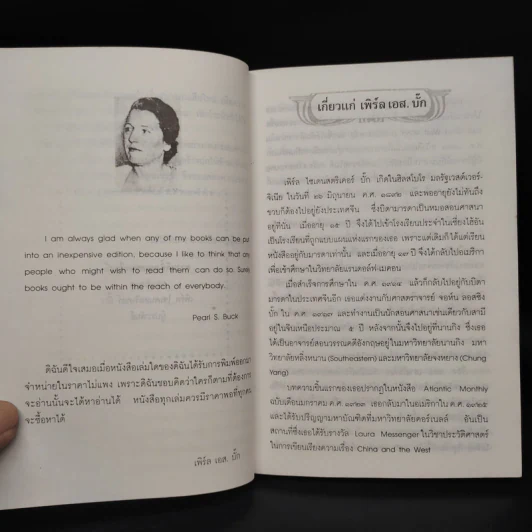 I am always glad when any of my books can be put
into an inexpensive edition, because I like to think that any
people who might wish to read them can do so. Surely
books ought to be within the reach of everybody.
Pearl S. Buck
ดิฉันดีใจเสมอเมื่อหนังสือเล่มใดของดิฉันได้รับการพิมพ์ออกมา
จำหน่ายในราคาไม่แพง เพราะดิฉันชอบคิดว่าใครก็ตามที่ต้องการ
จะอ่านนั้นจะได้หาอ่านได้ หนังสือทุกเล่มควรมีราคาพอที่ทุกคน
จะซื้อหาได้
เพิร์ล เอส. บั๊ก
เกี่ยวแก่ เพิร์ล เอส. บั๊ก
เพิร์ล ไซเดนสตริคเกอร์ บั๊ก เกิดในฮิลสโบโร มลรัฐเวสต์เวอร์-
จิเนีย ในวันที่ ๒๖ มิถุนายน ค.ศ. ๑๘๙๒ และพออายุยังไม่ทันถึง
ขวบก็ต้องไปอยู่ยังประเทศจีน ซึ่งบิดามารดาเป็นหมอสอนศาสนา
อยู่ที่นั่น เมื่ออายุ ๑๕ ปี จึงได้ไปเข้าโรงเรียนประจำในเซี่ยงไฮ้อัน
เป็นโรงเรียนที่ถูกแบบแผนแห่งแรกของเธอ เพราะแต่เดิมก็ได้แต่เรียน
หนังสืออยู่กับมารดาเท่านั้น และเมื่ออายุ ๑๗ ปี จึงได้กลับไปอเมริกา
เพื่อเข้าศึกษาในวิทยาลัยแรนดอล์ฟเมคอน
เมื่อสำเร็จการศึกษาใน ค.ศ. ๑๙๑๔ แล้วก็กลับไปอยู่กับบิดา
มารดาในประเทศจีนอีก เธอแต่งงานกับศาสตราจารย์ จอห์น ลอสซิง
บั๊ก ใน ค.ศ. ๑๙๑๗ และทำงานเป็นนักสอนศาสนาเช่นเดียวกับสามี
อยู่ในจีนเหนือประมาณ ๕ ปี หลังจากนั้นจึงไปอยู่ที่นานกิง ซึ่งเธอ
ได้เป็นอาจารย์สอนวรรณคดีอังกฤษอยู่ในมหาวิทยาลัยนานกิง มหา-
วิทยาลัยหลิงหนาน (Southeastern) และมหาวิทยาลัยจงหยาง (Chung
Yang)
บทความชิ้นแรกของเธอปรากฏในหนังสือ Atlantic Monthly
ฉบับเดือนมกราคม ๑๙๒๓ เธอกลับมาในอเมริกาใน ค.ศ. ๑๙๒๕
และได้รับปริญญามหาบัณฑิตที่มหาวิทยาลัยคอร์เนลล์ อันเป็น
สถานที่ซึ่งเธอได้รับรางวัล Laura Messenger ในวิชาประวัติศาสตร์
ในการเขียนเรียงความเรื่อง China and the West